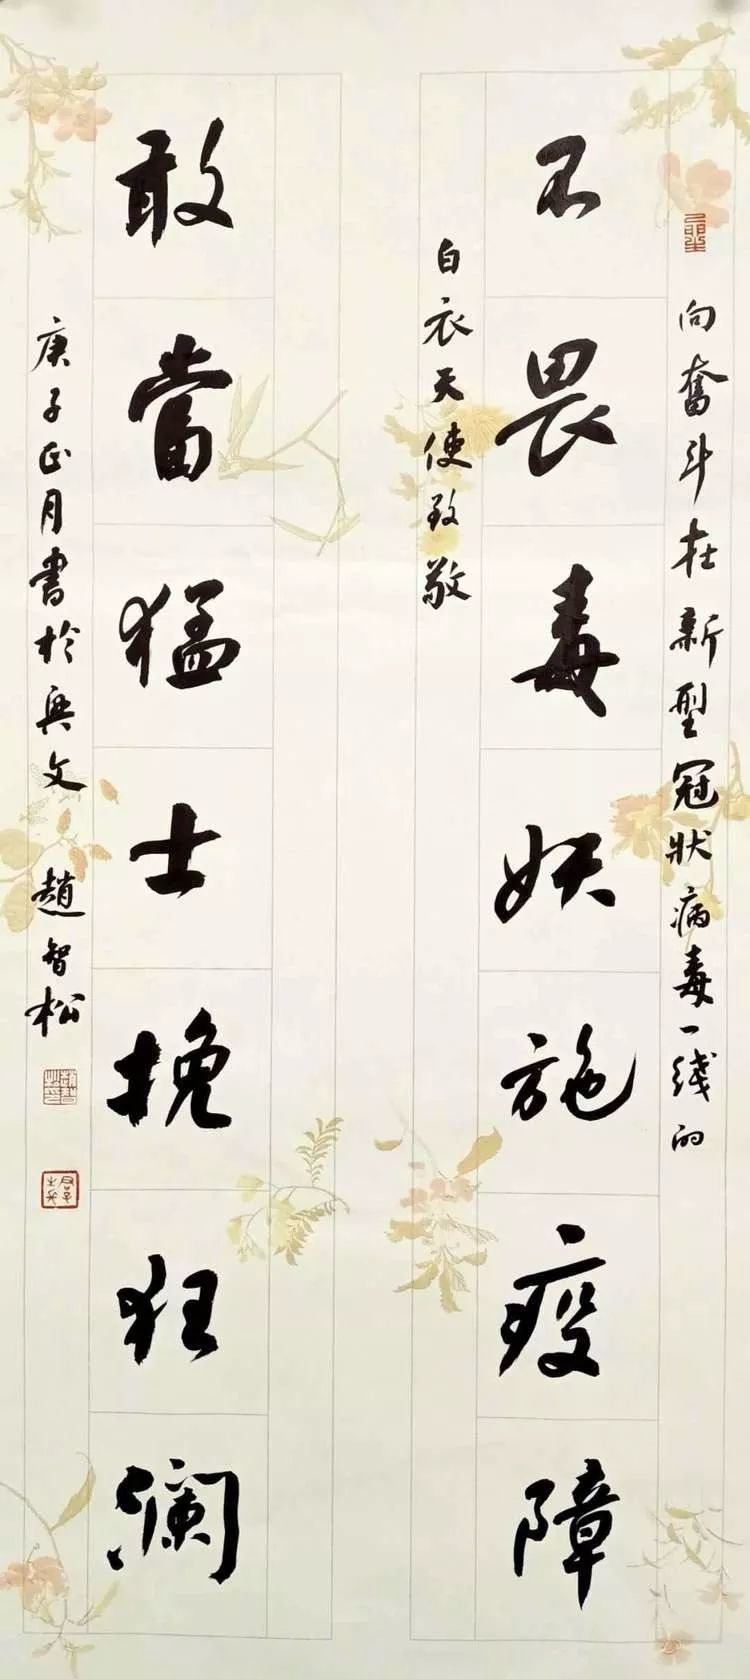 向奋斗在新型冠狀病毒一线的
不畏毒妖施疫障
白衣天使致敬
敢當猛士挽狂澜
庚子正月書於兴文 趙智松